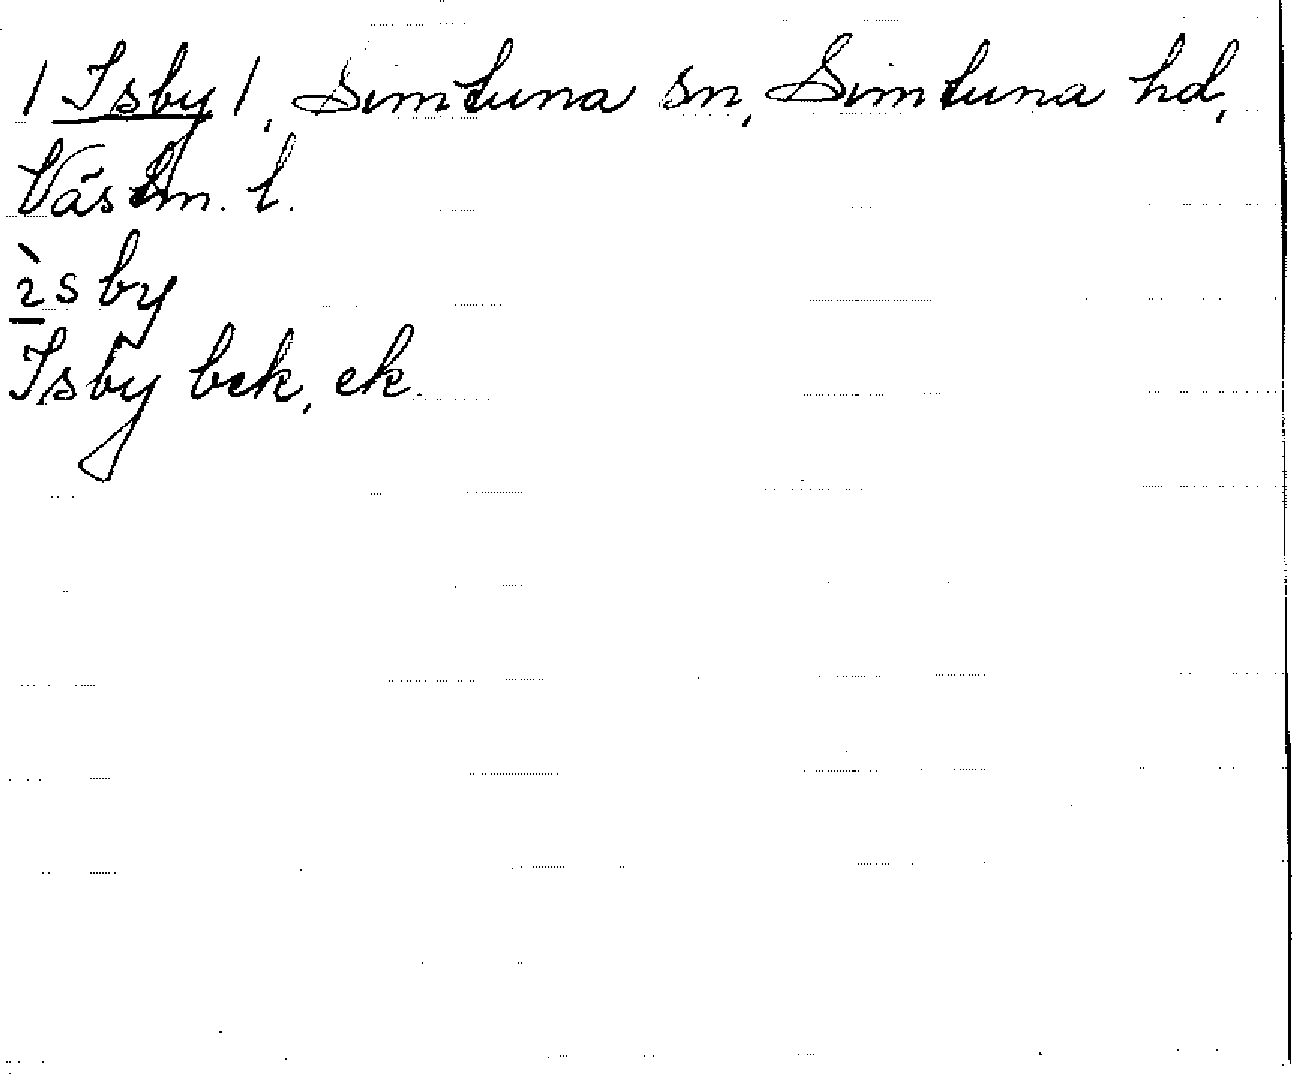 / Isby /, Simtuna sn, Simtuna hd,
Västm. l.
ìsby
Isby bek, ek.